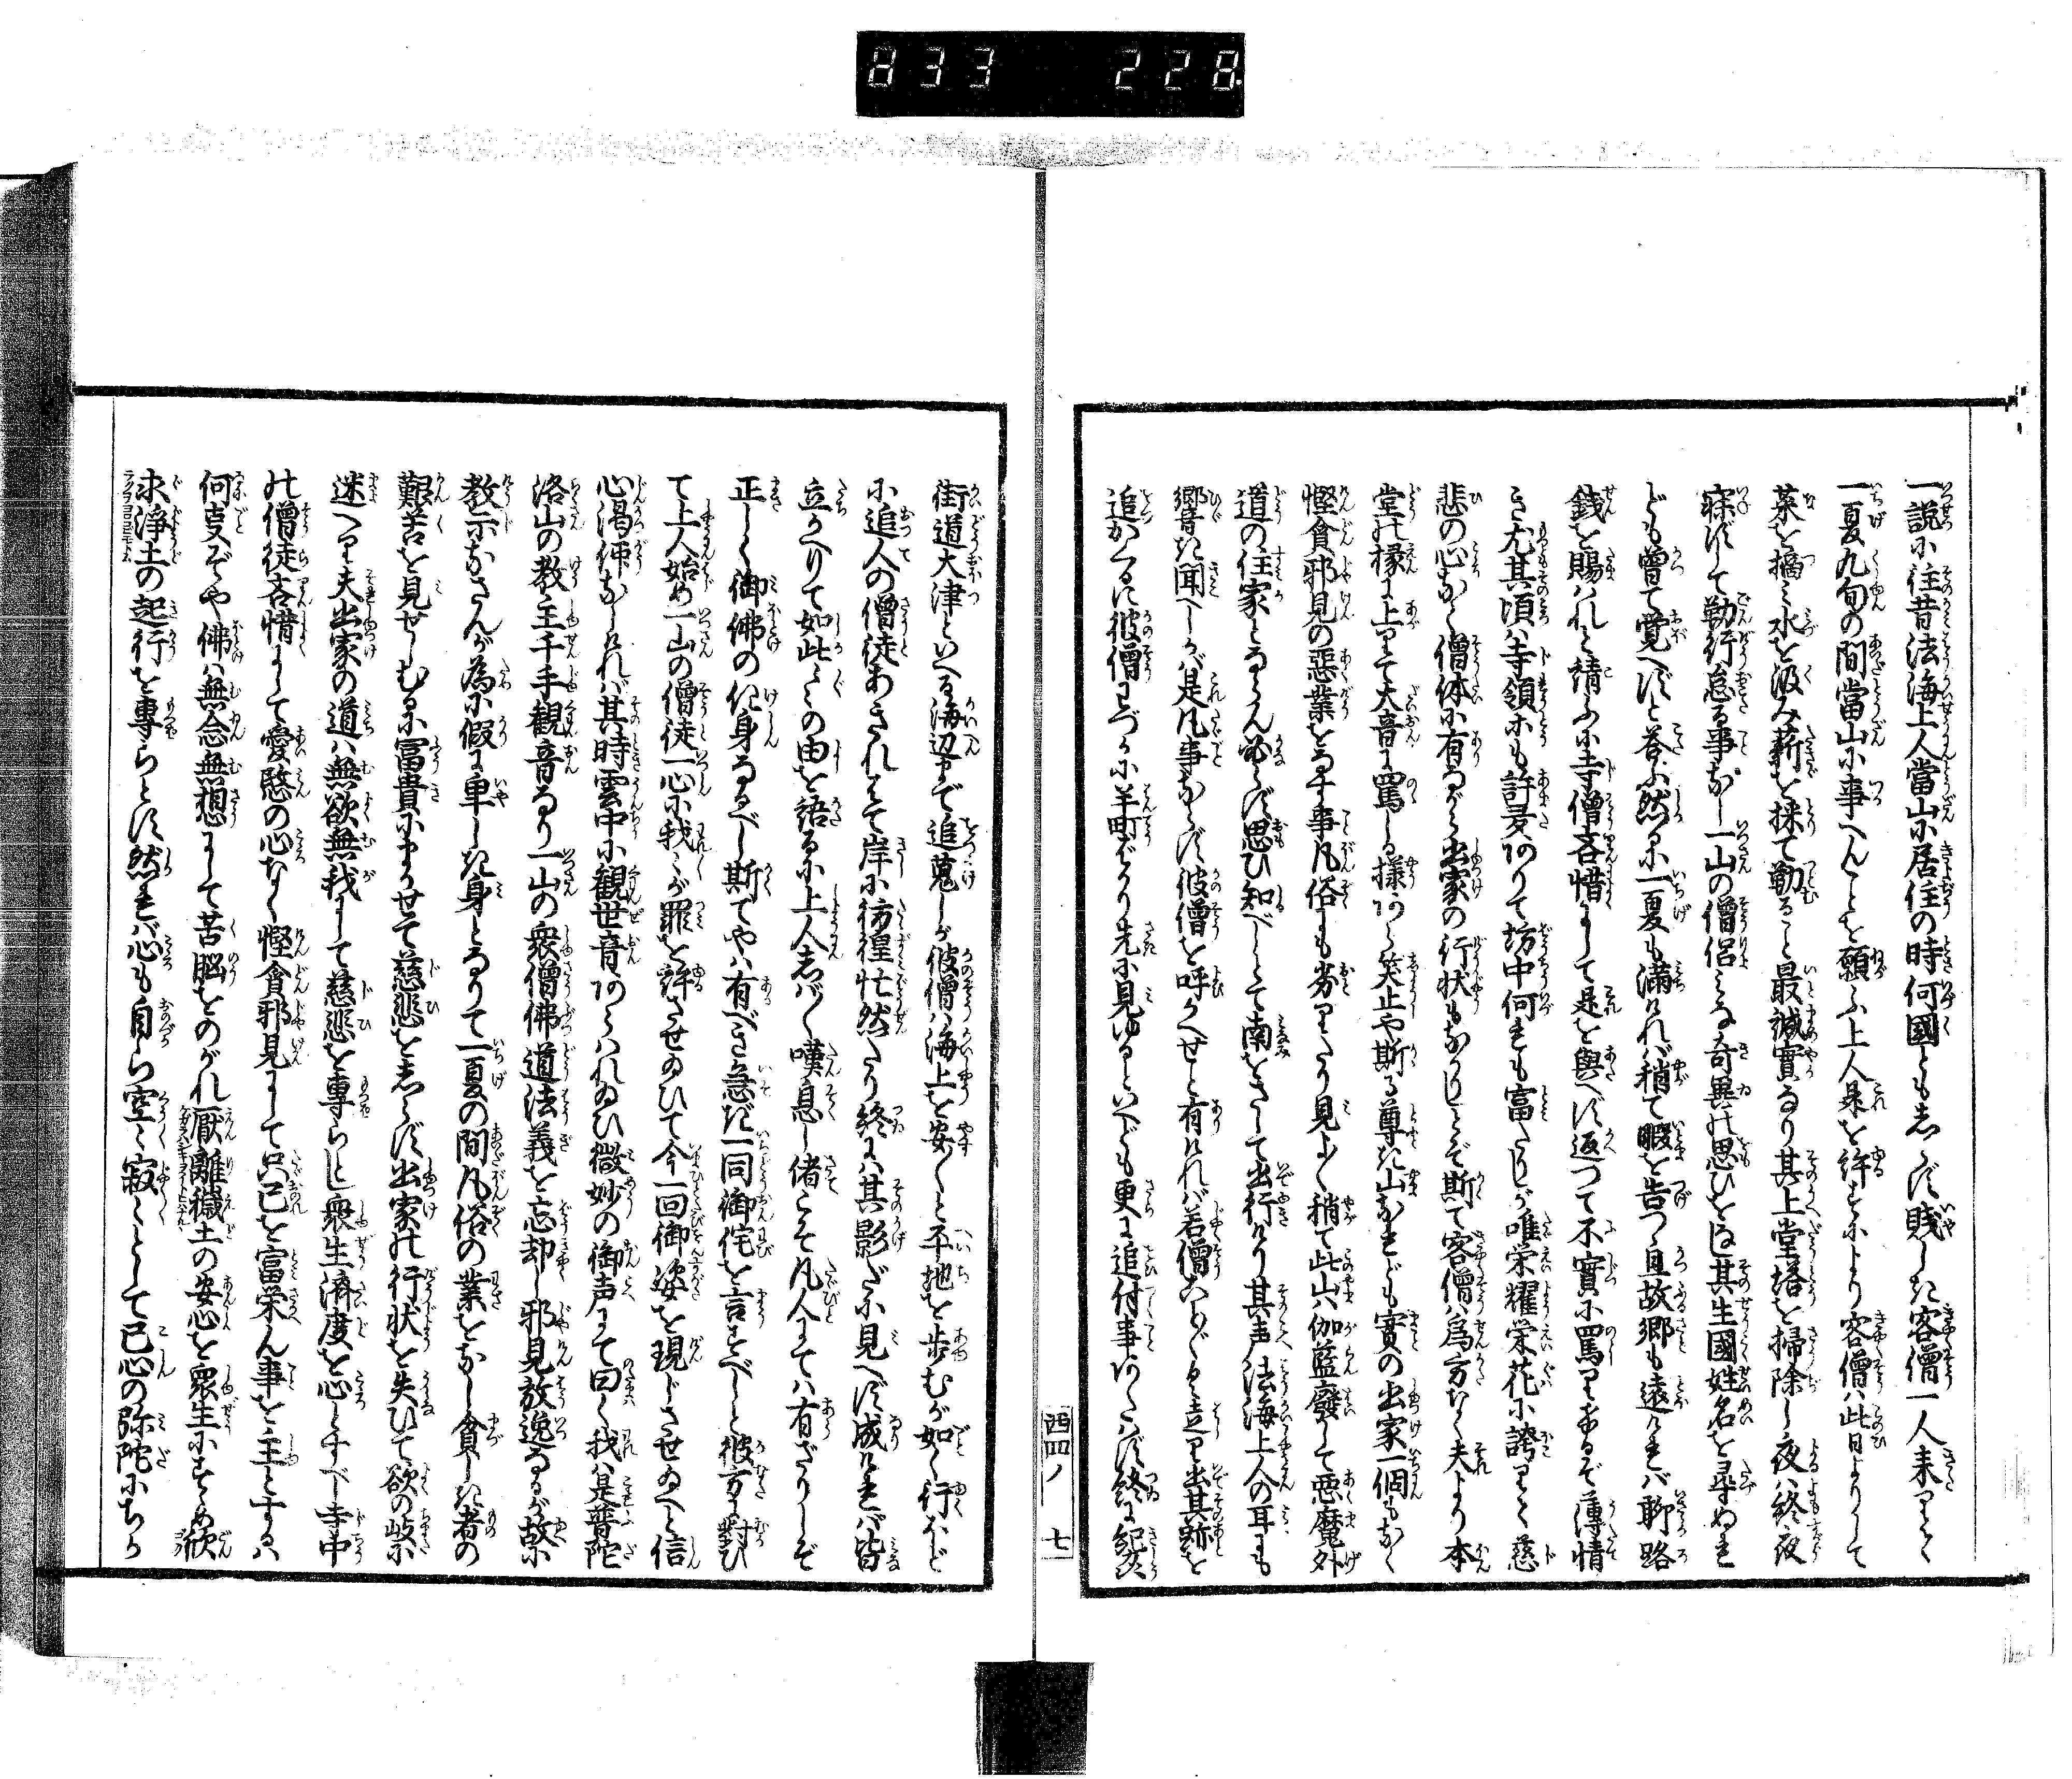 833 228
一説に往昔法海上人當山に居住の時何國ともしらず賤しき客僧一人来りて
一夏九旬の間當山に事へんことを願ふ上人是を許すにより客僧ハ此日よりして
菜を摘ミ水を汲み薪を採て勤ること最誠實なり其上堂塔を掃除し夜ハ終夜
寐ずして勤行怠る事なし一山の僧侶ミな奇異の思ひをなし其生國姓名を尋ぬれ
ども曽て覚へずと荅ふ然るに一夏も満けれバ稍て暇を告つゝ且故郷も遠けれバ聊路
銭を賜ハれと請ふに寺僧吝惜にして是を與へず返つて不實に罵りけるぞ薄情
き尤其頃ハ寺領なども許多ありて坊中何れも富たりしが唯栄耀栄花に誇りて慈
悲の心なく僧体に有ながら出家の行状もなかりしとぞ斯て客僧ハ為方なく夫より本
堂の椽に上りて大音に罵る様あら笑止や斯る尊き山なれども實の出家一個もなく
慳貪邪見の悪業をなす事凡俗にも劣りたり見よ〱稍て此山ハ伽藍廢して悪魔外
道の住家とならん必ず思ひ知べしとて南をさして出行けり其声法海上人の耳にも
響き聞へしかバ是凡事ならず彼僧を呼かへせと有けれバ若僧たち走り出其跡を
追かくるに彼僧わづかに半町ばかり先に見ゆるといへども更に追付事あたハず終に紀州
西四ノ 七
街道大津といへる海辺まで追蒐しが彼僧ハ海上を安〱と平地を歩むが如く行ほど
に追人の僧徒あきれはて岸に彷徨忙然たり終にハ其影だに見へず成けれバ皆
立かへりて如此〱の由を語るに上人しバ〱嘆息し偖こそ凡人にてハ有ざりしぞ
正しく御佛の化身なるべし斯てやハ有べき急ぎ一同御侘を言すべしと彼方に對ひ
て上人始め一山の僧徒一心に我〱が罪を許させ給ひて今一回御姿を現じさせ給へと信
心渇仰なしけれバ其時雲中に観世音あらハれ給ひ微妙の御声にて曰く我ハ是普陀
洛山の教主千手観音なり一山の衆僧佛道法義を忘却し邪見放逸なるが故に
教示なさんが為に假に卑しき身となりて一夏の間凡俗の業をなし貧しき者の
艱苦を見せしむるに冨貴にまかせて慈悲をしらず出家の行状を失ひて欲の岐に
迷へり夫出家の道ハ無欲無我にして慈悲を専らとし衆生済度を心とすべし寺中
の僧徒吝惜にして愛愍の心なく慳貪邪見にして只己を富栄ん事を主とするハ
何事ぞや佛ハ無念無想にして苦脳をのがれ厭離穢土の安心を衆生にすゝめ欣
求浄土の起行を専らとす然れバ心も自ら空〱寂〱として己心の弥陀にちか